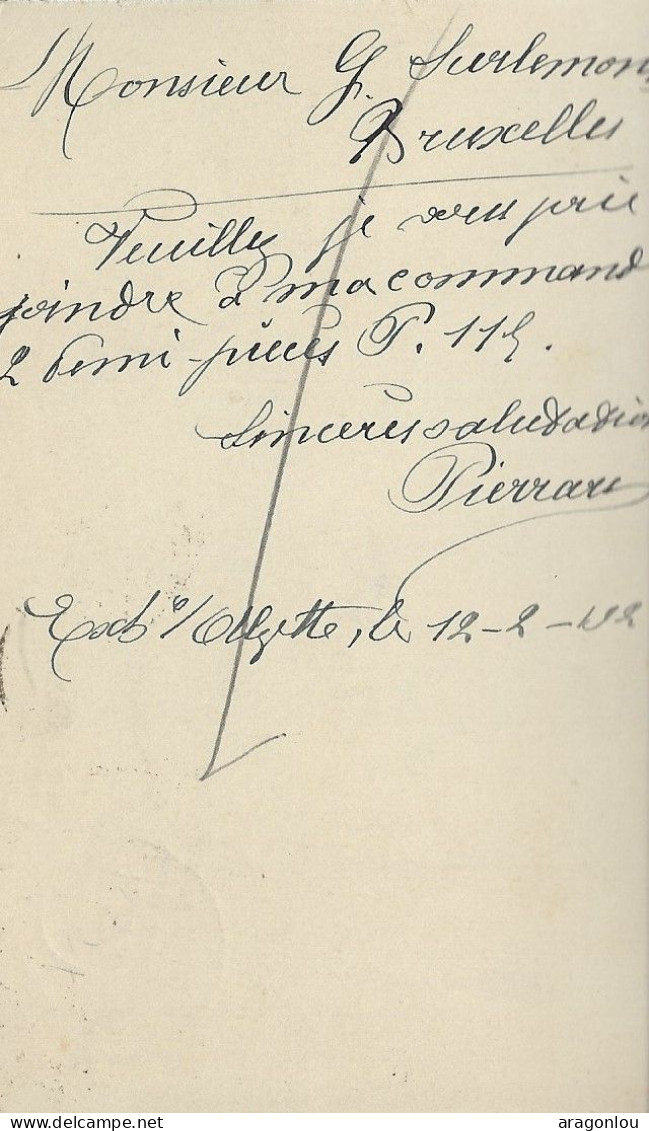 Monsieur G. Surlemont
Bruxelles
Veuillez je vous prie
joindre à ma command
2 demi-pièces P. 115.
Sincères salutation
Pierrar
Esch s/Alzette, le 12-2-192
delcampe.net
aragonlou